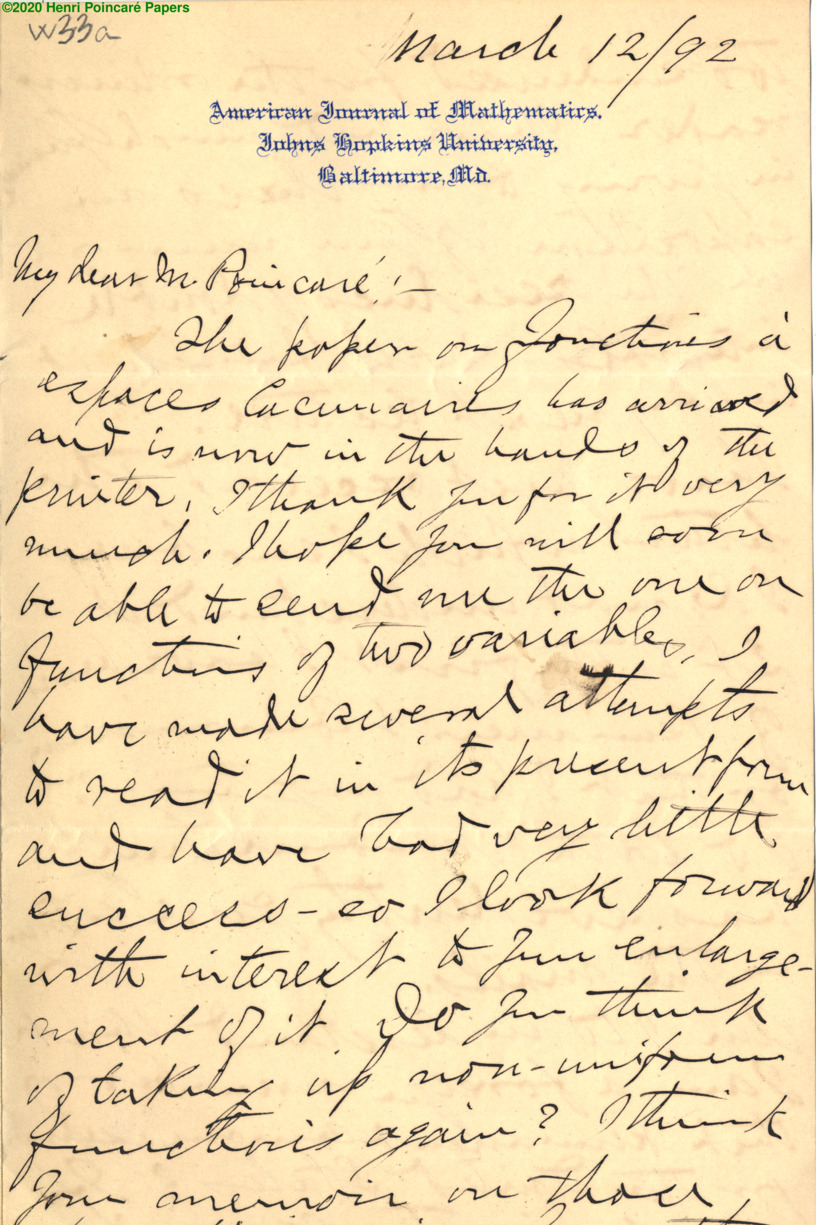 ©2020 Henri Poincaré Papers
w33a
March 12/92
American Journal of Mathematics,
Johns Hopkins University,
Baltimore, Md.
My dear M. Poincaré:—
The paper on Fonctions à
espaces lacunaires has arrived
and is now in the hands of the
printer. I thank you for it very
much. I hope you will soon
be able to send me the one on
functions of two variables. I
have made several attempts
to read it in its present form
and have had very little
success – so I look forward
with interest to your enlarge-
ment of it. Do you think
of taking up non-uniform
functions again? I think
your memoir on those